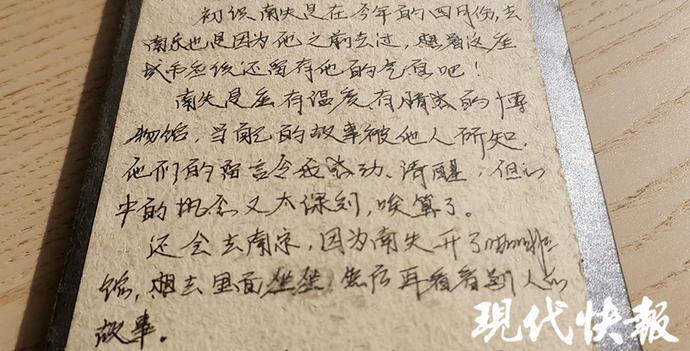 初识南失是在今年的四月份，去
南京也是因为他之前去过，想着这座
城市应该还留有他的气息吧！
南失是座有温度有情感的博
物馆，当自己的故事被他人所知，
他们的留言令我感动、清醒，但心
中的执念又太深刻，唉算了。
还会去南京，因为南失开了咖啡
馆，想去里面坐坐，然后再看看别人的
故事。
現代快報